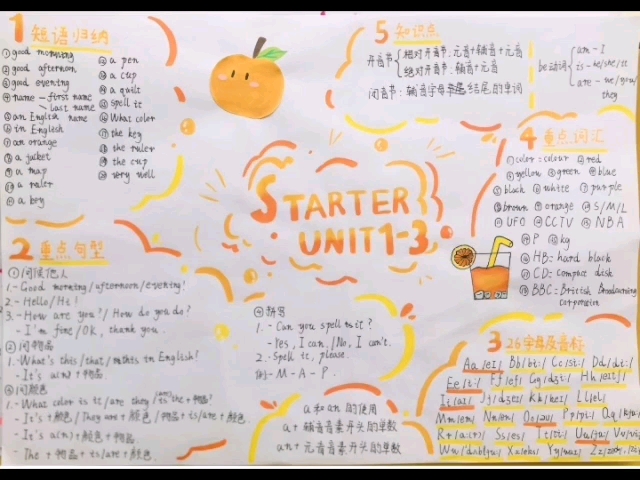 1 短语归纳
①good morning
②good afternoon
③good evening
④name - first name
last name
⑤an English name
⑥in English
⑦an orange
⑧a jacket
⑨a map
⑩a ruler
⑪a boy
⑫a pen
⑬a cup
⑭a quilt
⑮spell it
⑯What color
⑰the key
⑱the ruler
⑲the cup
⑳very well
5 知识点
开音节
相对开音节:元音+辅音+元音
绝对开音节:辅音+元音
闭音节:辅音字母结尾的单词
be动词
am - I
is - he/she/it
are - we/you/
they
STARTER
UNIT1-3
4 重点词汇
①color=colour ②red
③yellow ④green ⑤blue
⑥black ⑦white ⑧purple
⑨brown ⑩orange ⑪S/M/L
⑫UFO ⑬CCTV ⑭NBA
⑮P ⑯kg
⑰HB=hard black
⑱CD=compact disk
⑲BBC=British Broadcasting
Corporation
2 重点句型
①问候他人
1.-Good morning/afternoon/evening!
2.-Hello/Hi!
3.-How are you?/How do you do?
-I'm fine/OK, thank you.
②问物品
1.-What's this/that/in English?
-It's a(n)+物品.
③问颜色
1.-What color is it/are they/is the+物品?
-It's+颜色/They are+颜色/物品+is/are+颜色.
-It's a(n)+颜色+物品.
-The+物品+is/are+颜色.
④拼写
1.-Can you spell it?
-Yes, I can./No, I can't.
2.-Spell it, please.
例-M-A-P.
a和an的使用
a+辅音音素开头的单数
an+元音音素开头的单数
3 26字母及音标
Aa/eɪ/ Bb/biː/ Cc/siː/ Dd/diː/
Ee/iː/ Ff/ef/ Gg/dʒiː/ Hh/eɪtʃ/
Ii/aɪ/ Jj/dʒeɪ/ Kk/keɪ/ Ll/el/
Mm/em/ Nn/en/ Oo/əʊ/ Pp/piː/ Qq/kjuː/
Rr/ɑː(r)/ Ss/es/ Tt/tiː/ Uu/juː/ Vv/viː/
Ww/ˈdʌbljuː/ Xx/eks/ Yy/waɪ/ Zz